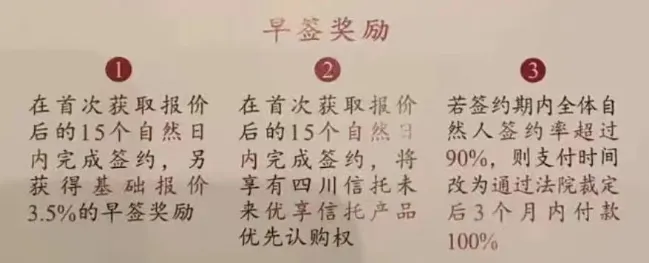 早签奖励
1
在首次获取报价
后的15个自然日
内完成签约，另
获得基础报价
3.5%的早签奖励
2
在首次获取报价
后的15个自然日
内完成签约，将
享有四川信托未
来优享信托产品
优先认购权
3
若签约期内全体自
然人签约率超过
90%，则支付时间
改为通过法院裁定
后3个月内付款
100%